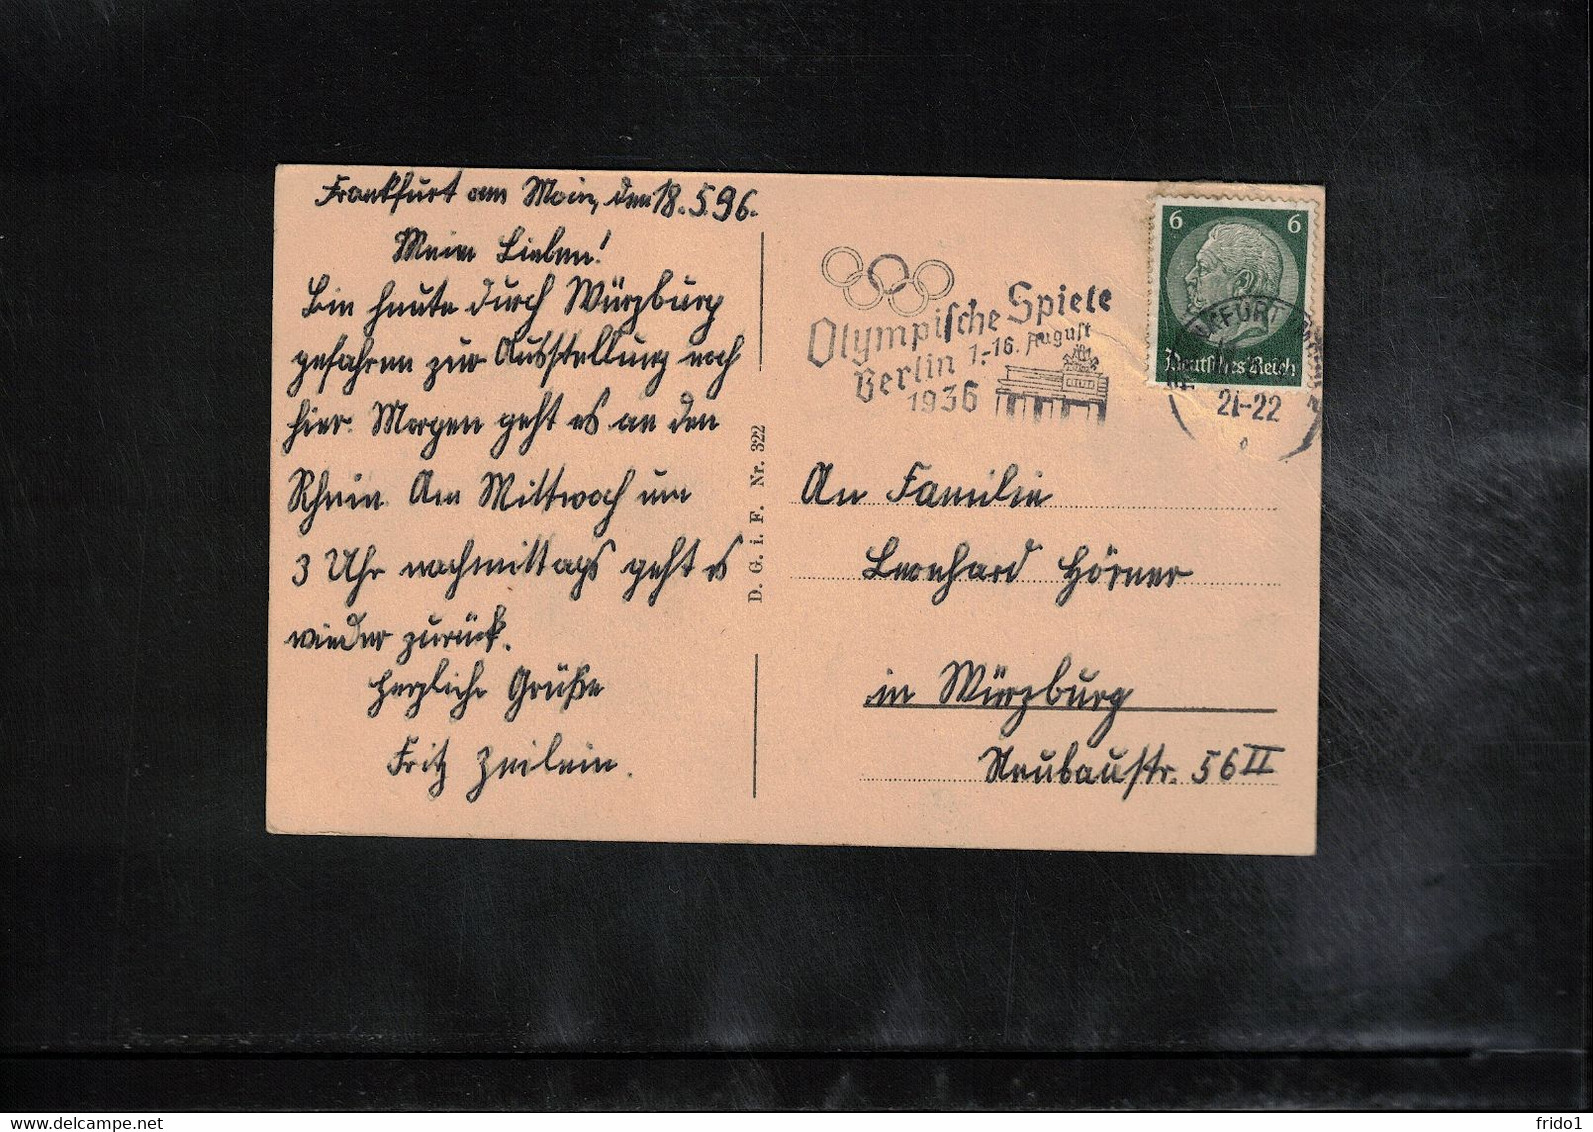 Frankfurt am Main, den 18.5.36.
Meine Lieben!
Bin heute durch Würzburg
gefahren zur Ausstellung nach
hier. Morgen geht es an den
Rhein. Am Mittwoch um
3 Uhr nachmittags geht es
wieder zurück.
Herzliche Grüße
Fritz Zeilein.
D. G. i. F. Nr. 322
Olympische Spiele
Berlin 1.-16. August
1936
6 6
Deutsches Reich
21-22
An Familie
Leonhard Hörner
in Würzburg
Neubaustr. 56 II
delcampe.net
frido1